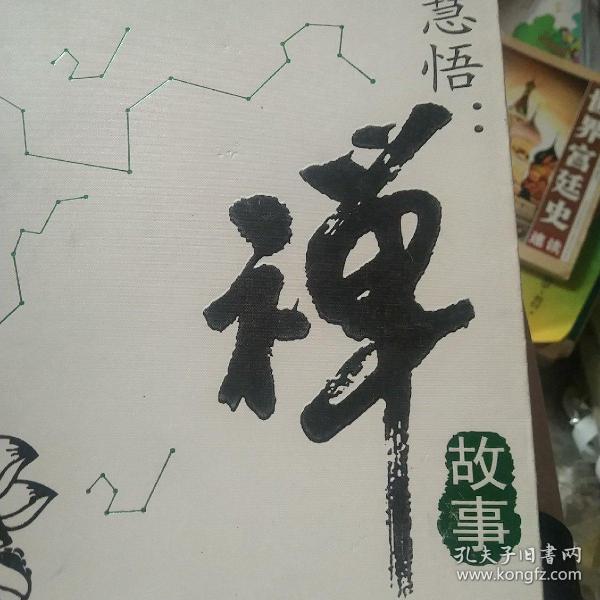 慧悟：
禅
故事
世界宫廷史
速读
孔夫子旧书网
www.kongfz.com